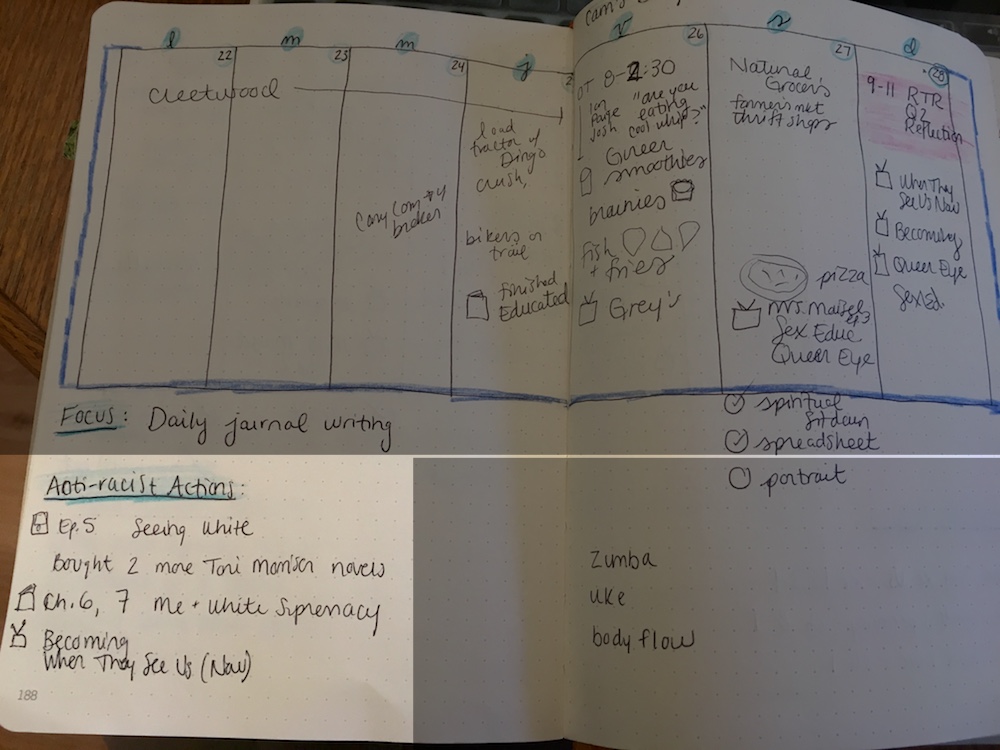 l m m j v s d
22 23 24 26 27 28
Cleetwood
load
tractor w/
Dingo
crush,
bikers on
trail
finished
Educated
OT 8-2:30
Ian
Paige
Josh
"are you
eating
cool whip?"
Green
smoothies
brainies
fish
+ fries
Grey's
Natural
Grocers
farmers mkt
thrift shops
pizza
Mrs. Maisel
ep3
Sex Educ
Queer Eye
9-11 RTR
Q2
Reflection
When They
See Us Now
Becoming
Queer Eye
Sex Ed.
spiritual
sitdown
spreadsheet
portrait
Focus: Daily journal writing
Anti-racist Actions:
Ep. 5 Seeing White
Bought 2 more Toni Morrison novels
Ch. 6, 7 Me + White Supremacy
Becoming
When They See Us (Now)
Zumba
uke
body flow
188